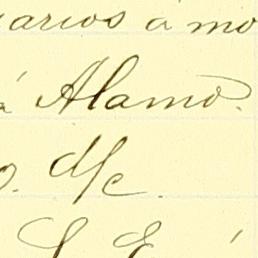 arios a mo
á Alamo.
o. M/c.
S E